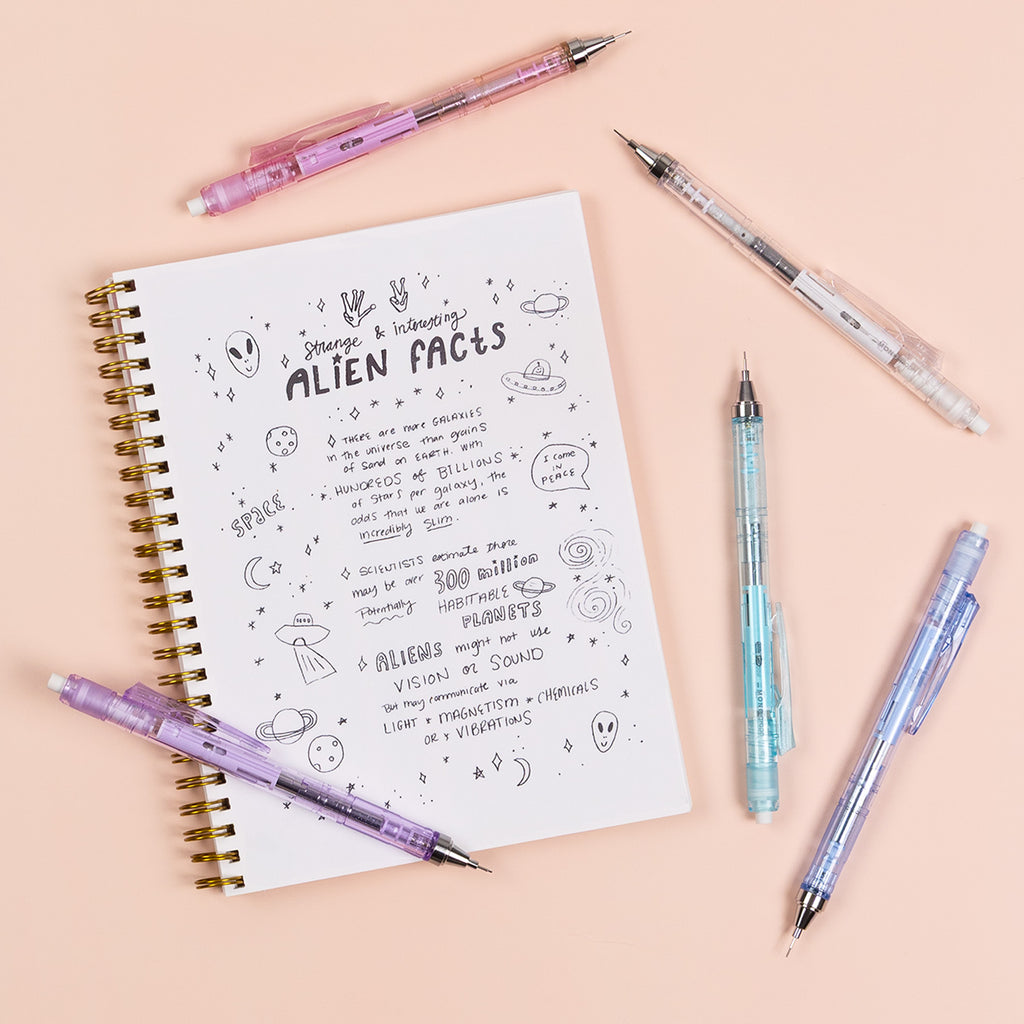 Strange & interesting
ALIEN FACTS
THERE are more GALAXIES
in the universe than grains
of Sand on EARTH. With
HUNDREDS of BILLIONS
of Stars per galaxy, the
odds that we are alone is
incredibly Slim.
I come
IN
PEACE
SPACE
SCIENTISTS estimate there
may be over 300 million
Potentially HABITABLE
PLANETS
ALIENS might not use
VISION or SOUND
But may communicate via
LIGHT * MAGNETISM * CHEMICALS
OR * VIBRATIONS
MONO